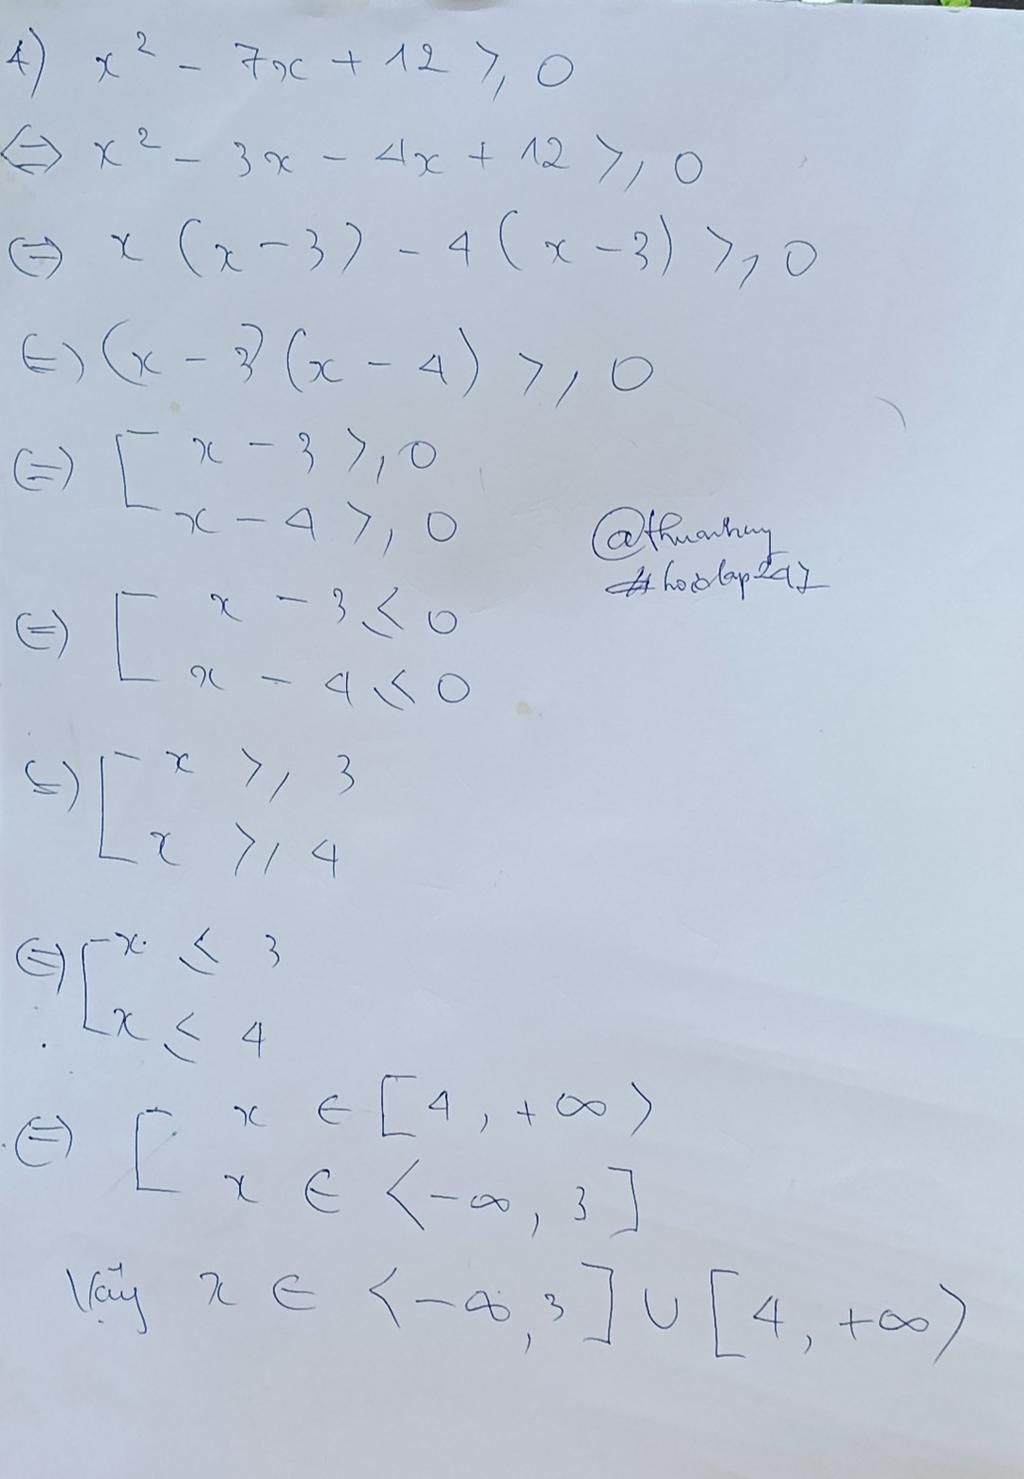 4) x² - 7x + 12 ⩾ 0
⇔ x² - 3x - 4x + 12 ⩾ 0
⇔ x (x - 3) - 4 (x - 3) ⩾ 0
⇔ (x - 3) (x - 4) ⩾ 0
⇔ [ x - 3 ⩾ 0
x - 4 ⩾ 0
@thuanhuy
#hoidap247
⇔ [ x - 3 ⩽ 0
x - 4 ⩽ 0
⇔ [ x ⩾ 3
x ⩾ 4
⇔ [ x ⩽ 3
x ⩽ 4
⇔ [ x ∈ [4, +∞)
x ∈ (-∞, 3]
Vậy x ∈ (-∞, 3] ∪ [4, +∞)